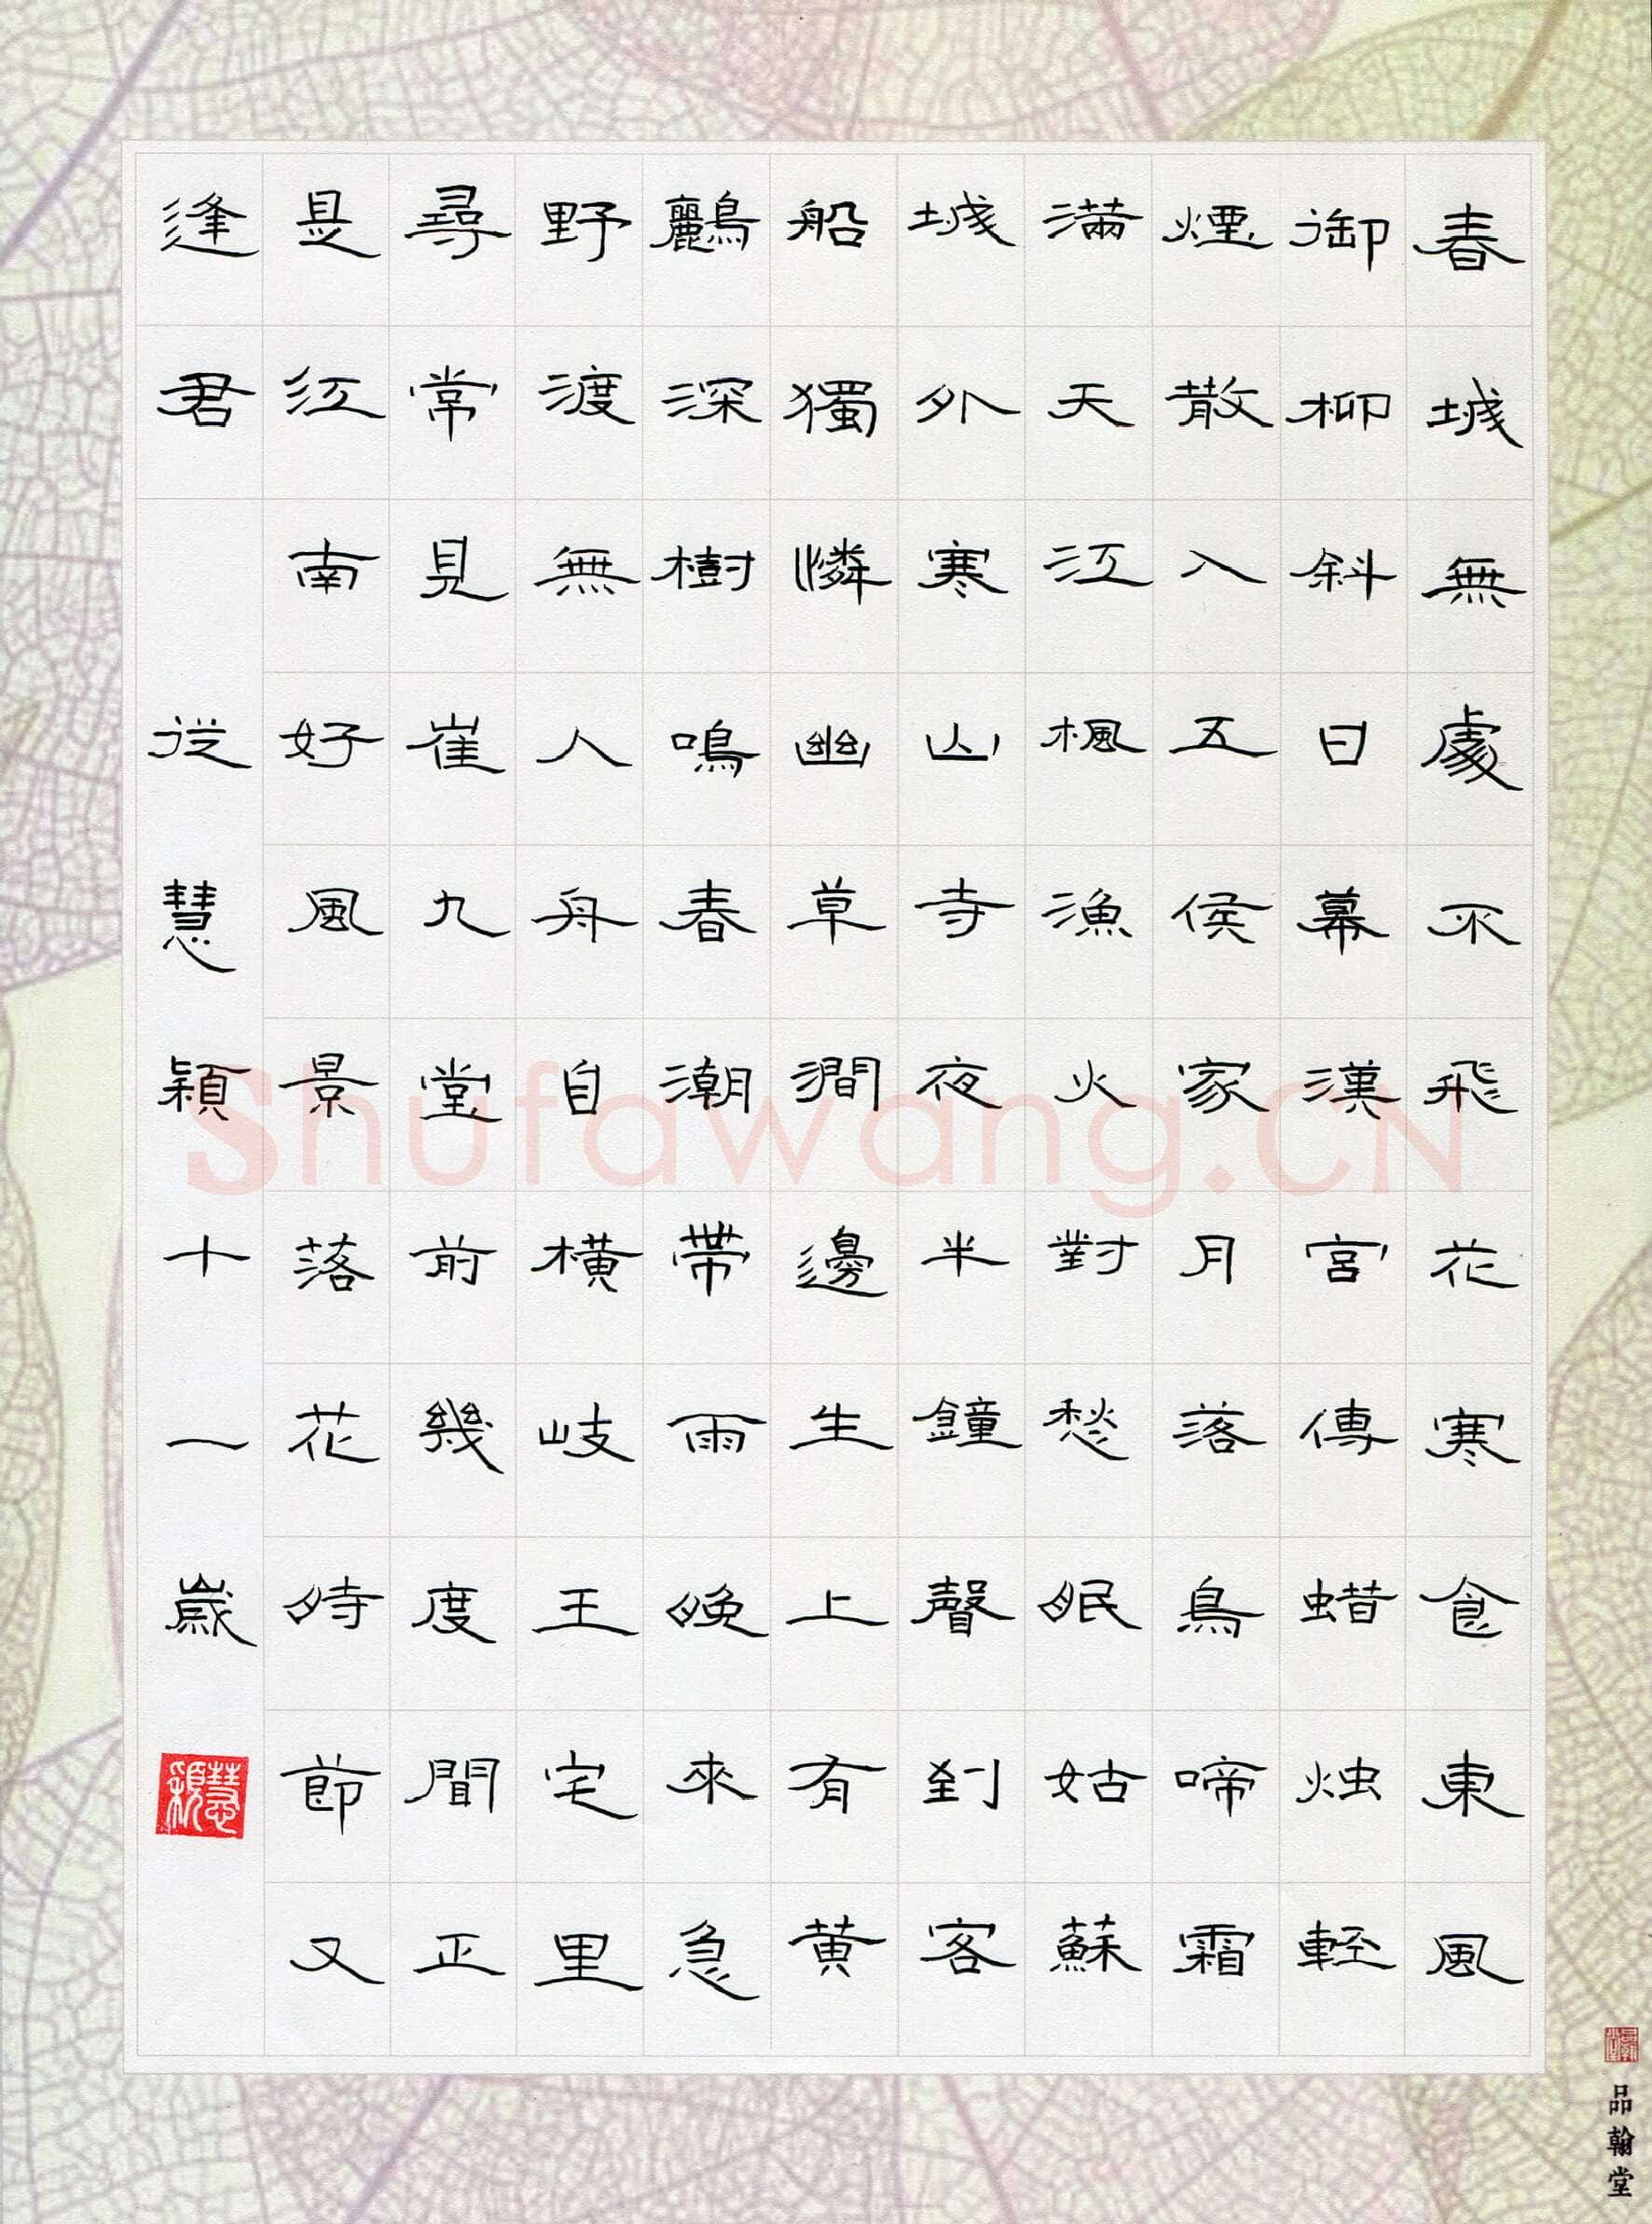 春城無處不飛花寒食東風
御柳斜日幕漢宮傳蜡烛輕
煙散入五侯家月落鳥啼霜
滿天江楓漁火對愁眠姑蘇
城外寒山寺夜半鐘聲到客
船獨憐幽草澗邊生上有黄
鸝深樹鳴春潮帶雨晚來急
野渡無人舟自橫岐王宅里
尋常見崔九堂前幾度聞正
是江南好風景落花時節又
逢君
從慧穎十一歲
慧穎
品翰堂
Shufawang.CN